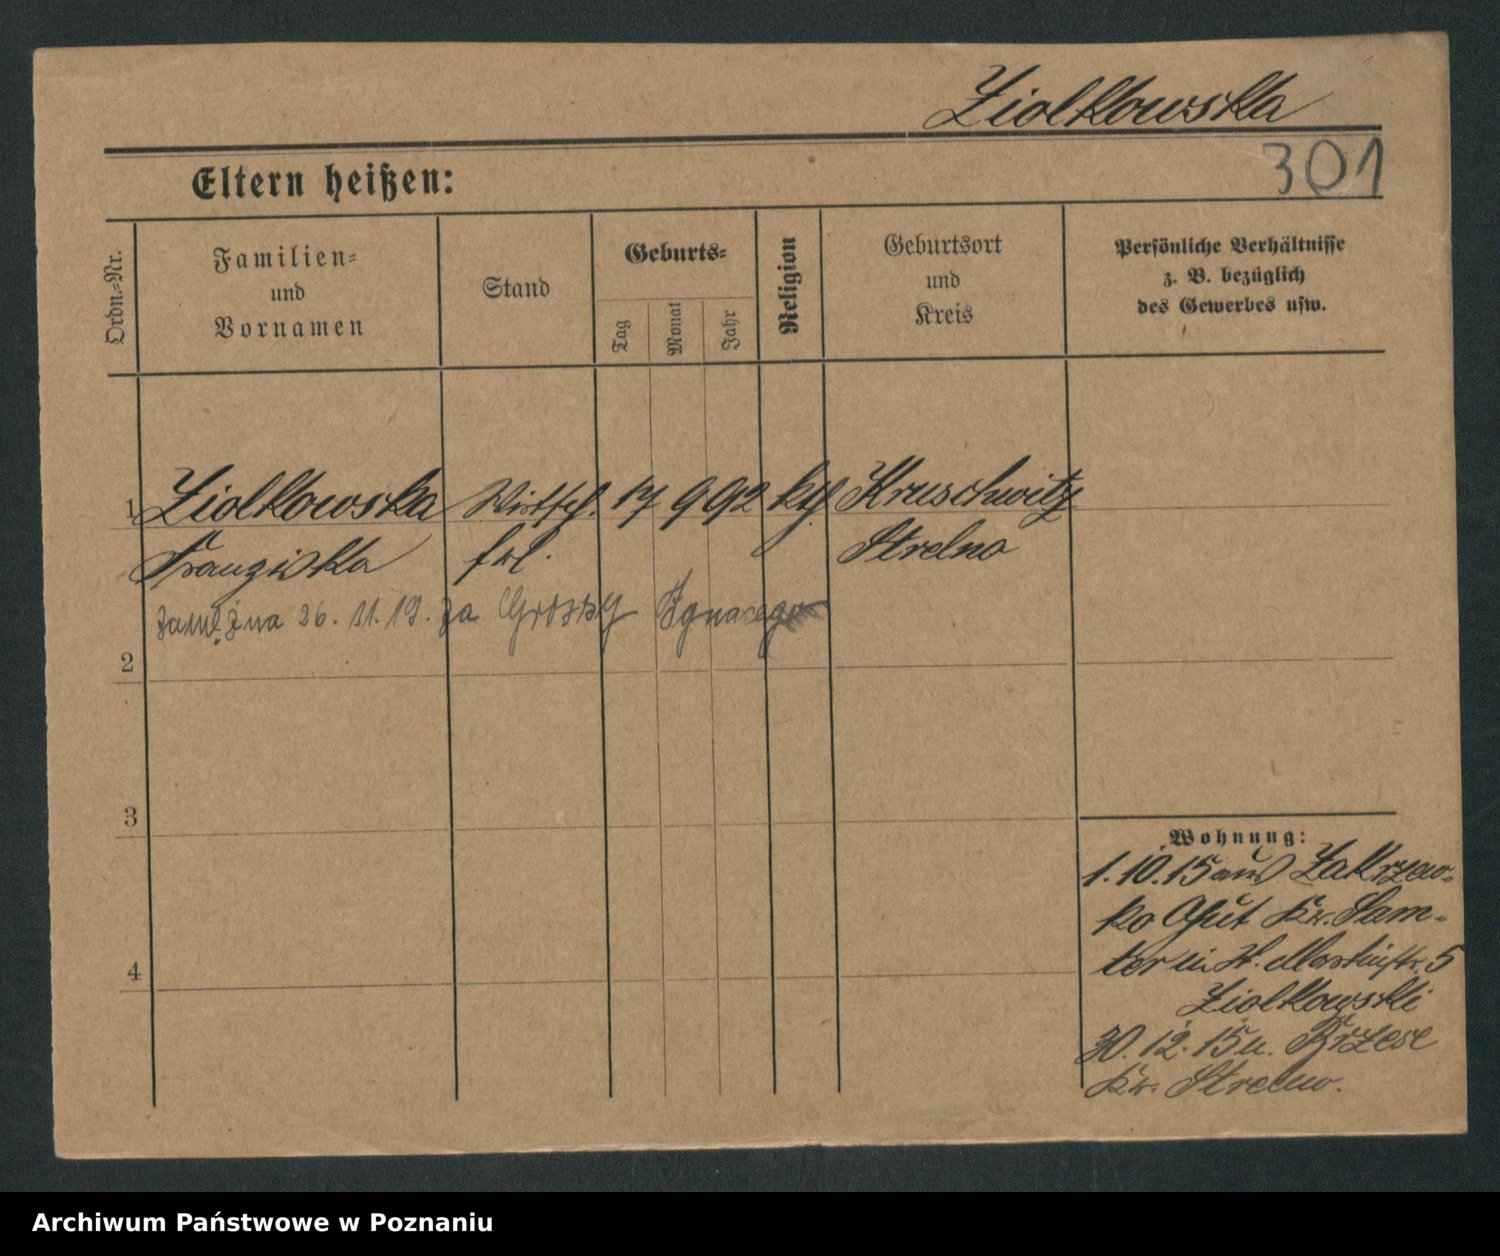 Ziolkowska
Eltern heißen:
301
Ordn.-Nr.
Familien-
und
Vornamen
Stand
Geburts-
Tag
Monat
Jahr
Religion
Geburtsort
und
Kreis
Persönliche Verhältnisse
z. B. bezüglich
des Gewerbes usw.
1 Ziolkowska Wirtsch. 17 9 92 kth Kruschwitz
Franziska frl. Strelno
zamężna 26. 11. 19. za Ignacego
2
3
4
Wohnung:
1. 10. 15 aus Zakrzew-
ko Gut Kr. Sam-
ter in H. 5
Ziolkowski
30. 12. 15 n.
Kr. Strelno.
Archiwum Państwowe w Poznaniu